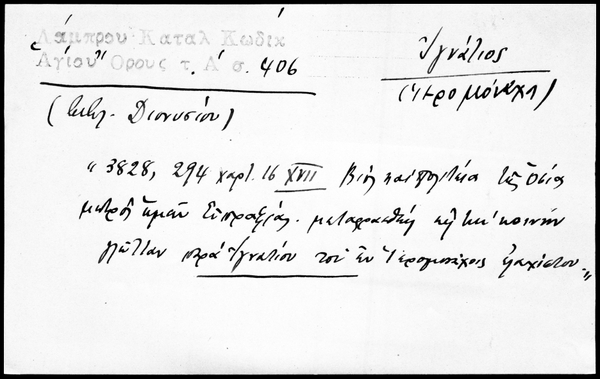 Λάμπρου Καταλ Κώδικ
Ἁγίου Ὄρους τ. Α΄ σ. 406
Ἰγνάτιος
(ἱερομόναχ)
(Βιβλ. Διονυσίου)
" 3828, 294 χαρτ. 16 XVII Βίος καὶ πολιτεία τῆς Ὁσίας
μητρὸς ἡμῶν Εὐπραξίας. μεταφρασθεὶς εἰς τὴν κοινὴν
γλῶτταν παρὰ Ἰγνατίου τοῦ ἐν Ἱερομονάχοις ἐλαχίστου."